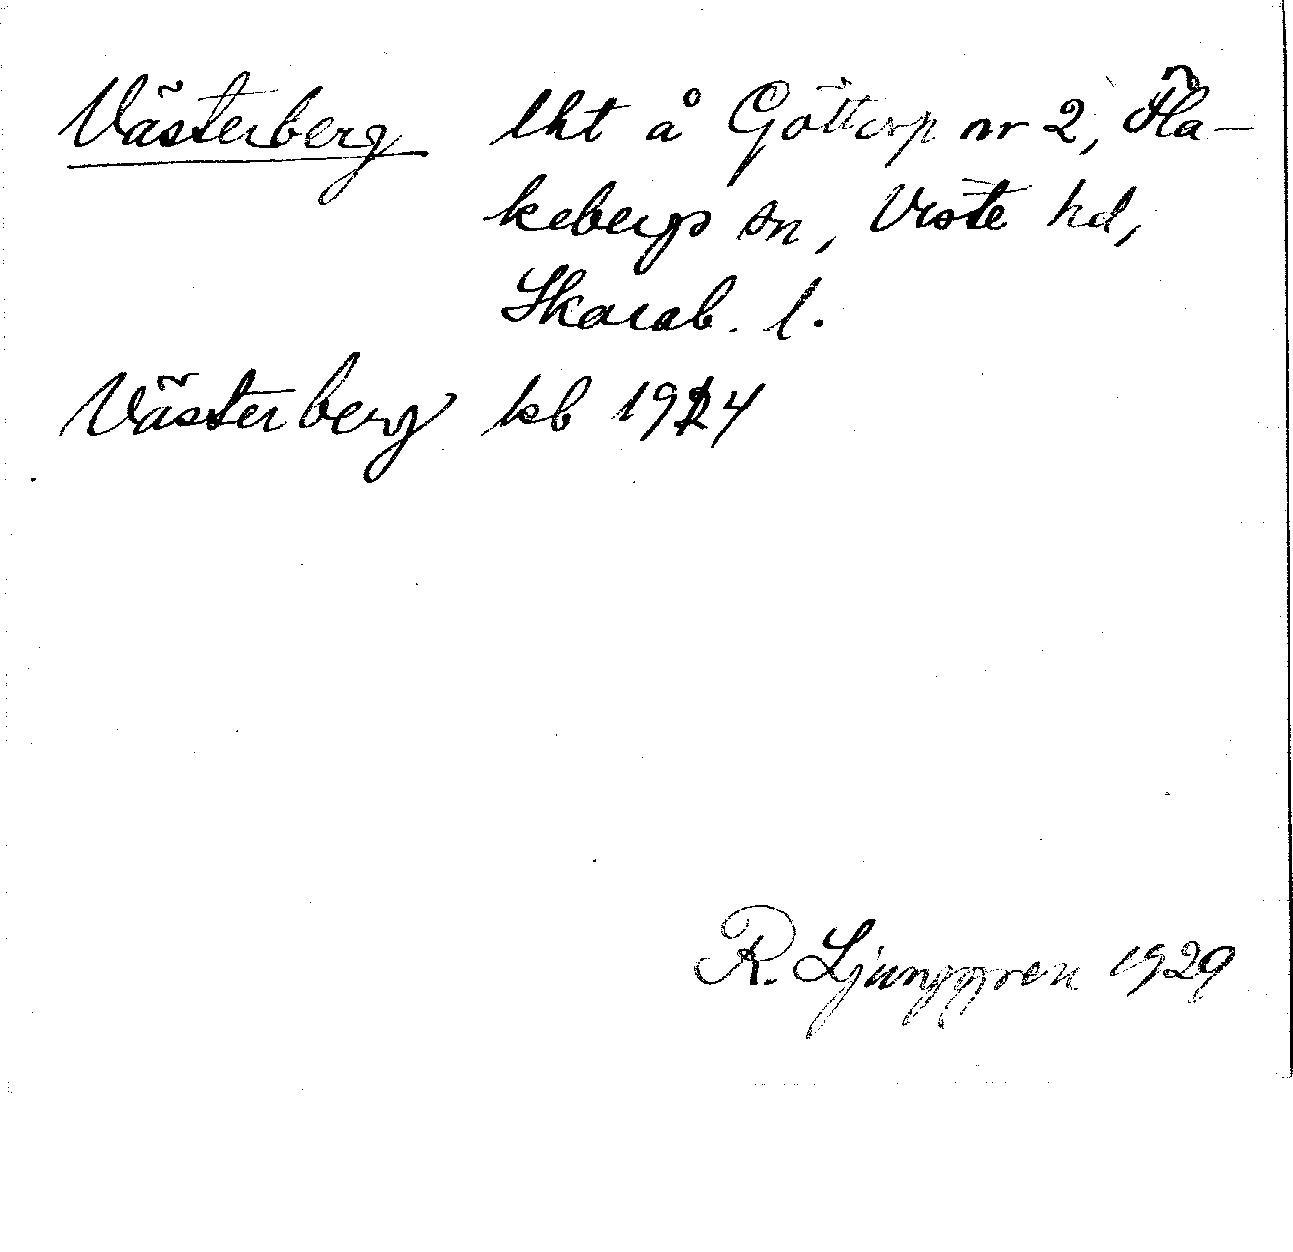 Västerberg lht å Göttorp nr 2, Fla-
kebergs sn, Viste hd,
Skarab. l.
Västerberg kb 1924
R. Ljunggren 1929